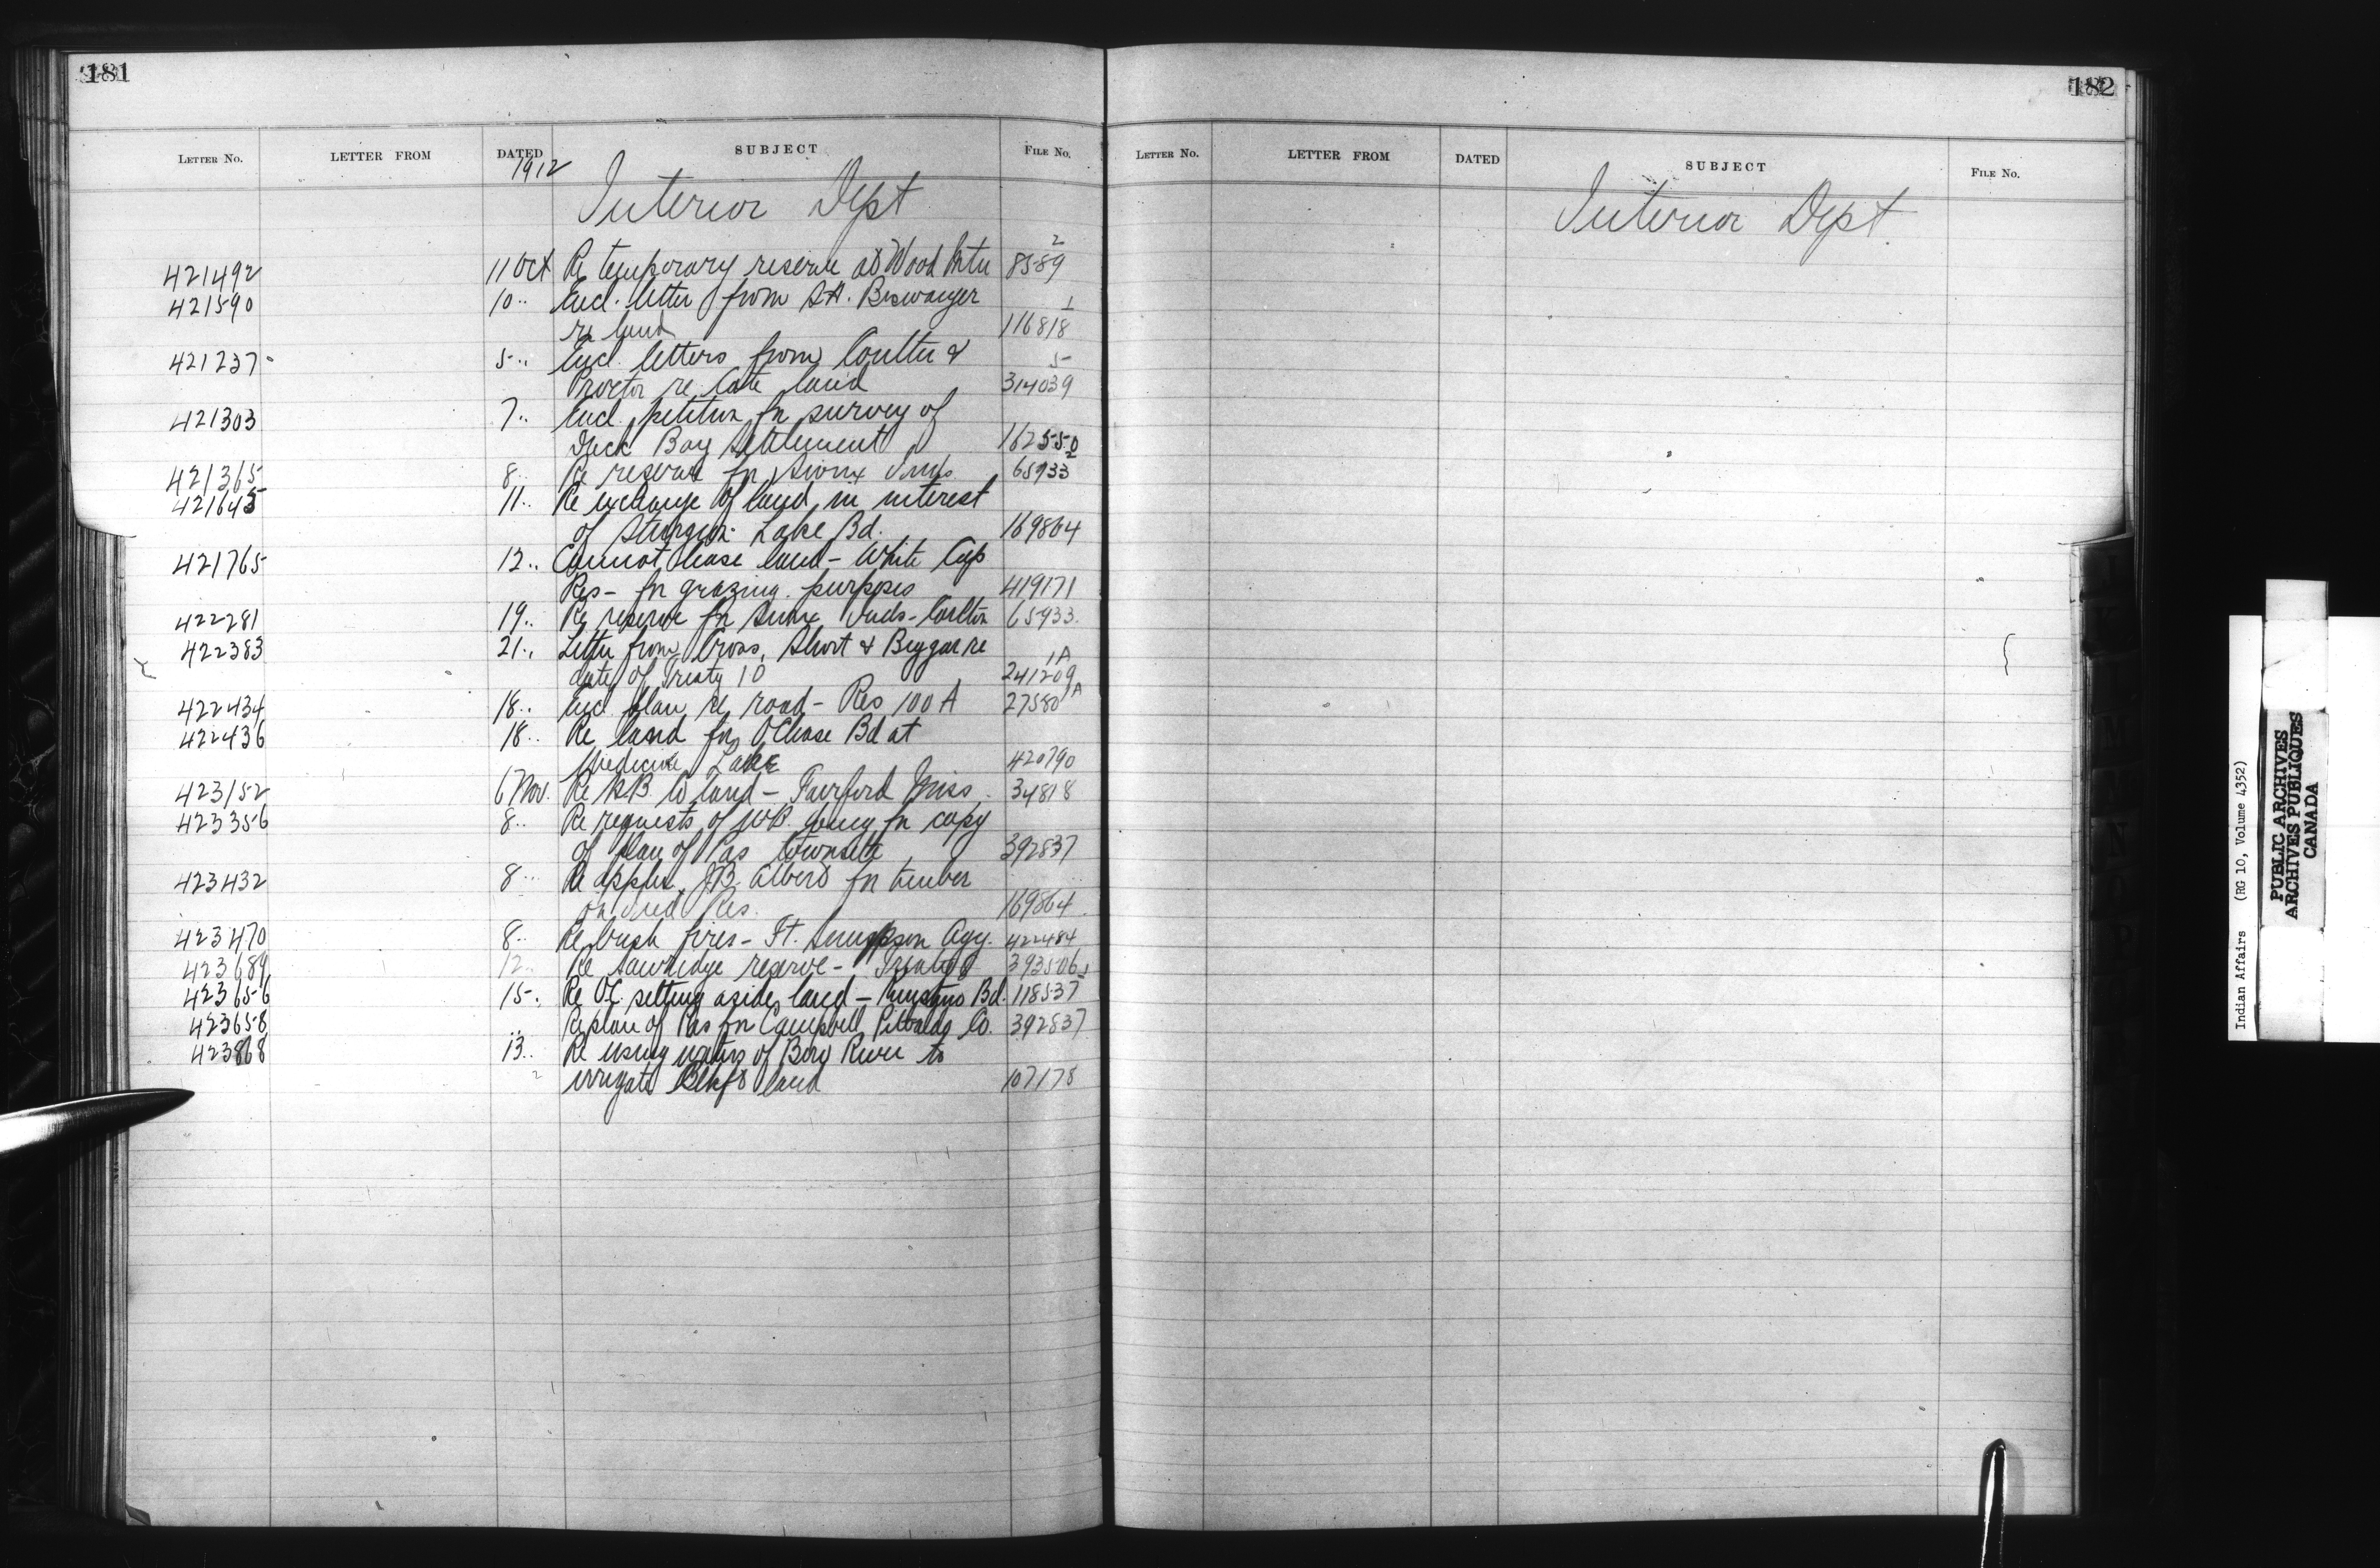 181
LETTER No. LETTER FROM DATED SUBJECT FILE No.
1912
Interior Dept
421492 11 Oct Re temporary reserve at Wood Mtn 2 8589
421590 10 " Encl. letter from
re land 1 116818
421237 5 " Encl. letters from Coulter &
Proctor re Cote land 5 314039
421303 7 " Encl. petition for survey of
Duck Bay Settlement 162550
421365 8 " Re reserve for Sioux Inds. 2 65933
421645 11 " Re exchange of land in interest
of Sturgeon Lake Bd. 169864
421765 12 " Cannot lease land - White Cap
Res - for grazing purposes 419171
422281 19 " Re reserve for Sioux Inds - Carlton 65933
422383 21 " Letter from Cross, Short & Biggar re
date of Treaty 10 1A 241209
422434 18 " Encl. plan re road - Res 100 A 27580 1A
422436 18 " Re land for OChase Bd at
Medicine Lake 420790
423152 6 Nov. Re H.B. Co land - Fairford Miss. 34818
423356 8 " Re requests of for copy
of plan of Pas townsite 392837
423432 8 " Re applcn J.B. for timber
on Ind Res. 169864
423470 8 " Re bush fires - Ft. Simpson Agy. 422484
423689 12 " Re reserve - Treaty 8 393506
423656 15 " Re O.C. setting aside land - Bd. 118537
423658 " Re plan of Pas for Campbell, Co. 392837
423868 13 " Re using waters of Bow River to
irrigate Blkft land 107178
182
LETTER No. LETTER FROM DATED SUBJECT FILE No.
Interior Dept.
Indian Affairs (RG 10, Volume 4352)
PUBLIC ARCHIVES
ARCHIVES PUBLIQUES
CANADA